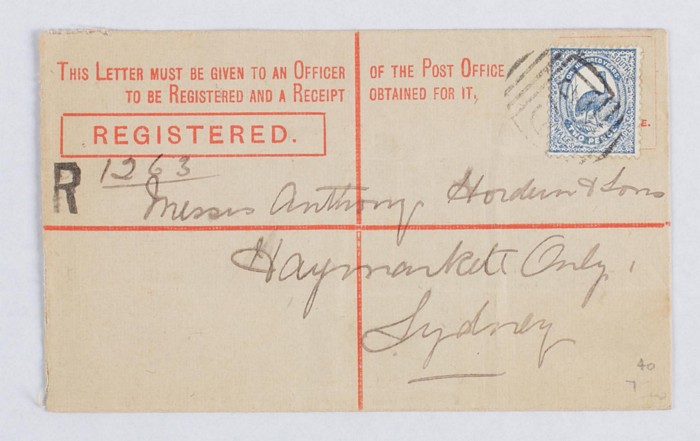 THIS LETTER MUST BE GIVEN TO AN OFFICER OF THE POST OFFICE
TO BE REGISTERED AND A RECEIPT OBTAINED FOR IT,
REGISTERED.
R 1263
TWO PENCE
E.
Messrs Anthony Hordern & Sons
Haymarket Only,
Sydney
40
7